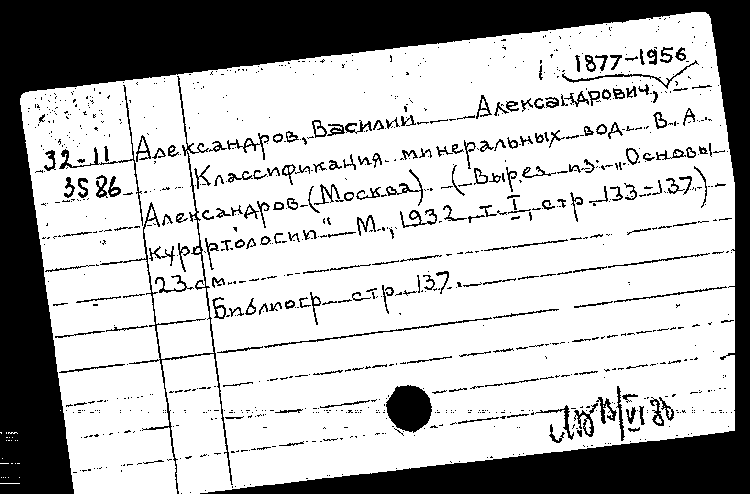 1877-1956
32-11 Александров, Василий Александрович,
3586 Классификация минеральных вод В. А.
Александров (Москва) (Вырез из: „Основы
курортологии" М., 1932, т. I, стр. 133-137)
23 см
Библиогр стр 137.